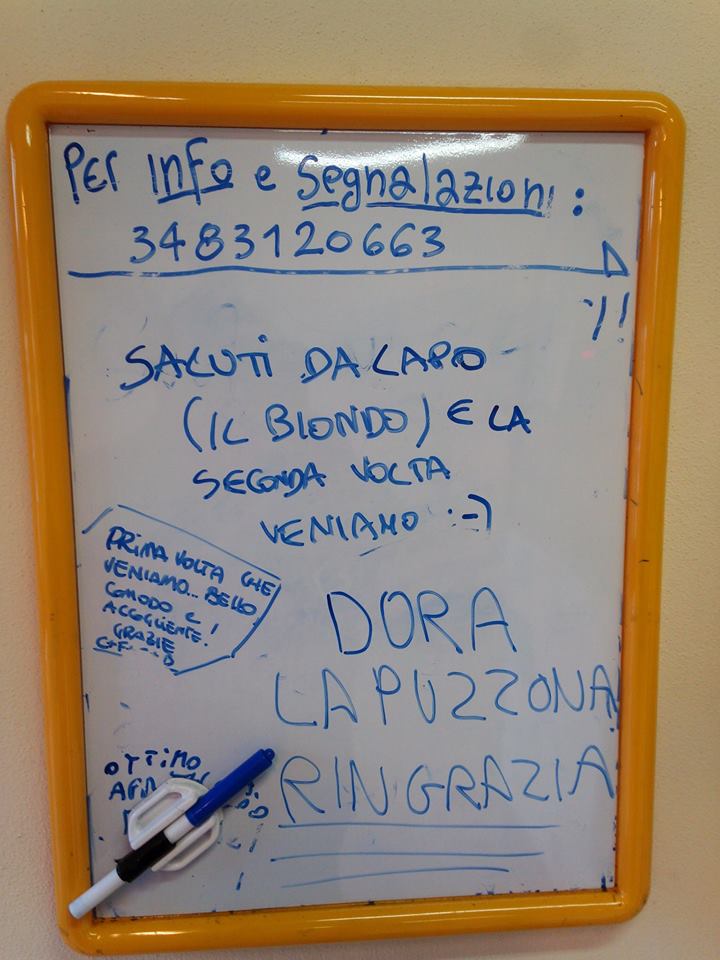 Per Info e Segnalazioni:
3483120663
:)!
SALUTI DA LAPO
(IL BIONDO) E LA
SECONDA VOLTA
VENIAMO :-)
PRIMA VOLTA CHE
VENIAMO... BELLO
COMODO E
ACCOGLIENTE!
GRAZIE
C+F
DORA
LA PUZZONA
RINGRAZIA
OTTIMO